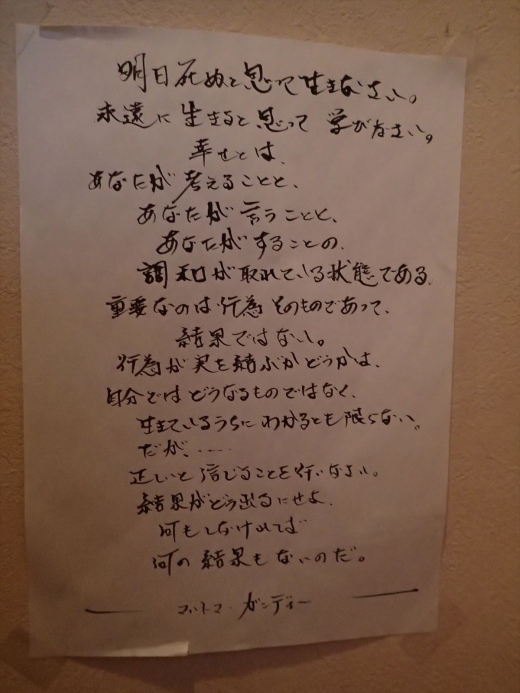 明日死ぬと思って生きなさい。
永遠に生きると思って学びなさい。
幸せとは、
あなたが考えることと、
あなたが言うことと、
あなたがすることの、
調和が取れている状態である。
重要なのは行為そのものであって、
結果ではない。
行為が実を結ぶかどうかは、
自分ではどうなるものではなく、
生きているうちにわかるとも限らない。
だが、……
正しいと信じることを行いなさい。
結果がどう出るにせよ、
何もしなければ
何の結果もないのだ。
マハトマ・ガンディー